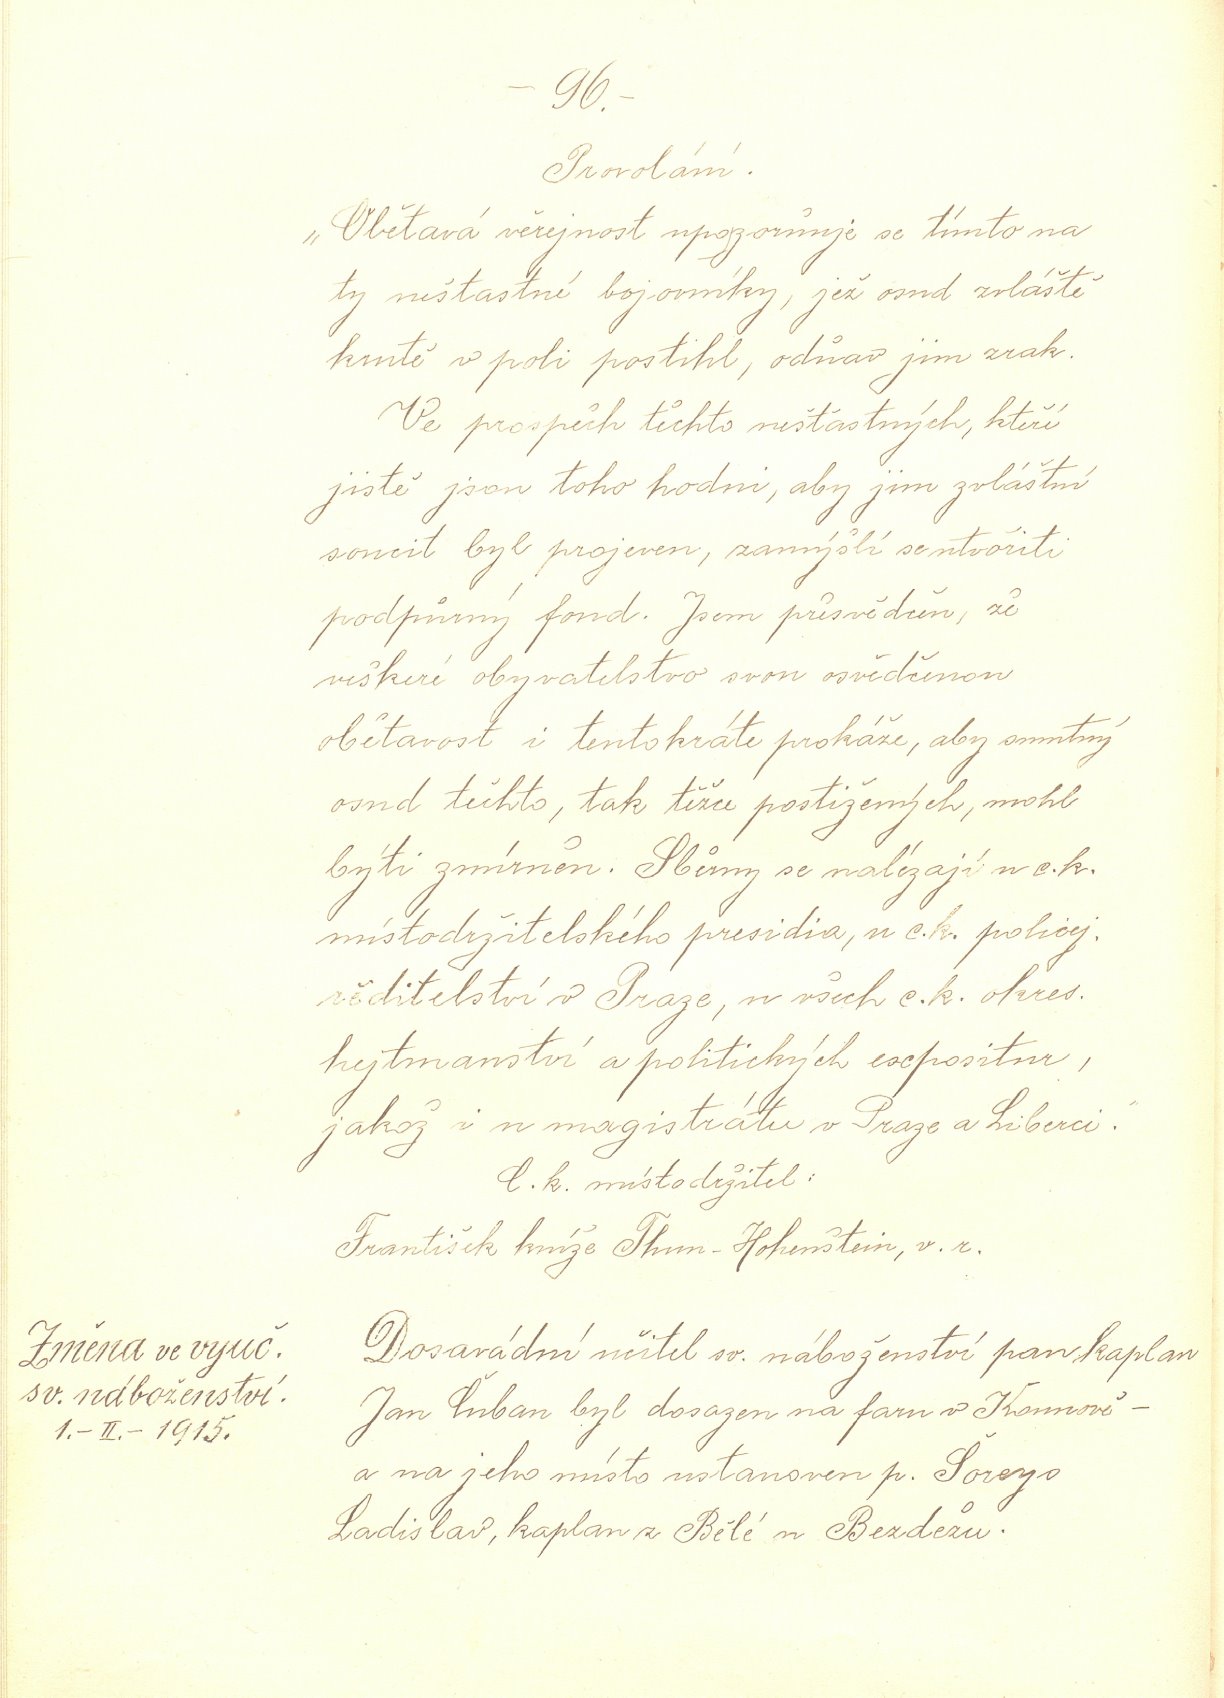 – 96. –
Provolání.
„Obětavá veřejnost upozorňuje se tímto na
ty nešťastné bojovníky, jež osud zvláště
krutě v poli postihl, odňav jim zrak.
Ve prospěch těchto nešťastných, kteří
jistě jsou toho hodni, aby jim zvláštní
soucit byl projeven, zamýšlí se utvořiti
podpůrný fond. Jsem přesvědčen, že
veškeré obyvatelstvo svou osvědčenou
obětavost i tentokráte prokáže, aby smutný
osud těchto, tak těžce postižených, mohl
býti zmírněn. Sběrny se nalézají u c.k.
místodržitelského presidia, u c.k. policej.
ředitelství v Praze, u všech c.k. okres.
hejtmanství a politických expositur,
jakož i u magistrátu v Praze a Liberci."
C. k. místodržitel:
František kníže Thun-Hohenštein, v. r.
Změna ve vyuč.
sv. náboženství.
1.–II.–1915.
Dosavádní učitel sv. náboženství pan kaplan
Jan Čuban byl dosazen na faru v –
a na jeho místo ustanoven p.
Ladislav, kaplan z Bělé u Bezdězu.